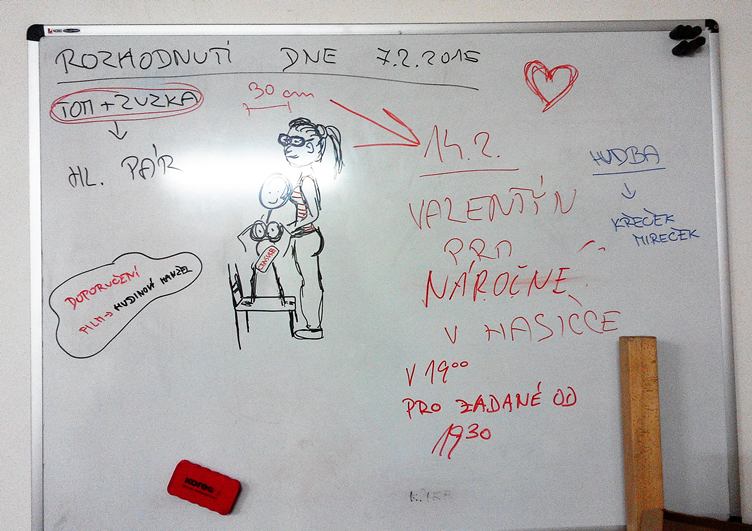 ROZHODNUTÍ DNE 7.2.2015
TOM + ZUZKA
30 cm
HL. PÁR
14.2.
VALENTÝN
PRO
NÁROČNÉ
V HASIČCE
V 19⁰⁰
PRO ZADANÉ OD
19³⁰
HUDBA
KŘEČEK
MIREČEK
DOPORUČENÍ
FILM → HUDINOVŮ MANŽEL
KORES